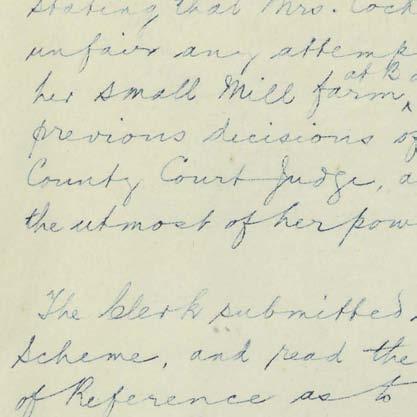 stating that Mrs. Cock
unfair any attemp
her small Mill farm,
at R
previous decisions of
County Court Judge, a
the utmost of her pow
The Clerk submitted
Scheme, and read the
of Reference as to